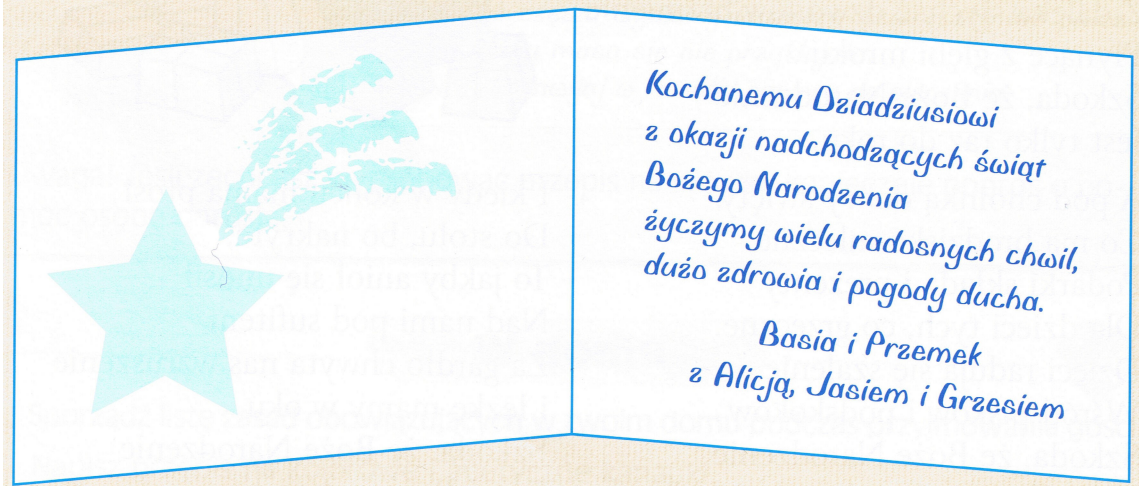 Kochanemu Dziadziusiowi
z okazji nadchodzących świąt
Bożego Narodzenia
życzymy wielu radosnych chwil,
dużo zdrowia i pogody ducha.
Basia i Przemek
z Alicją, Jasiem i Grzesiem